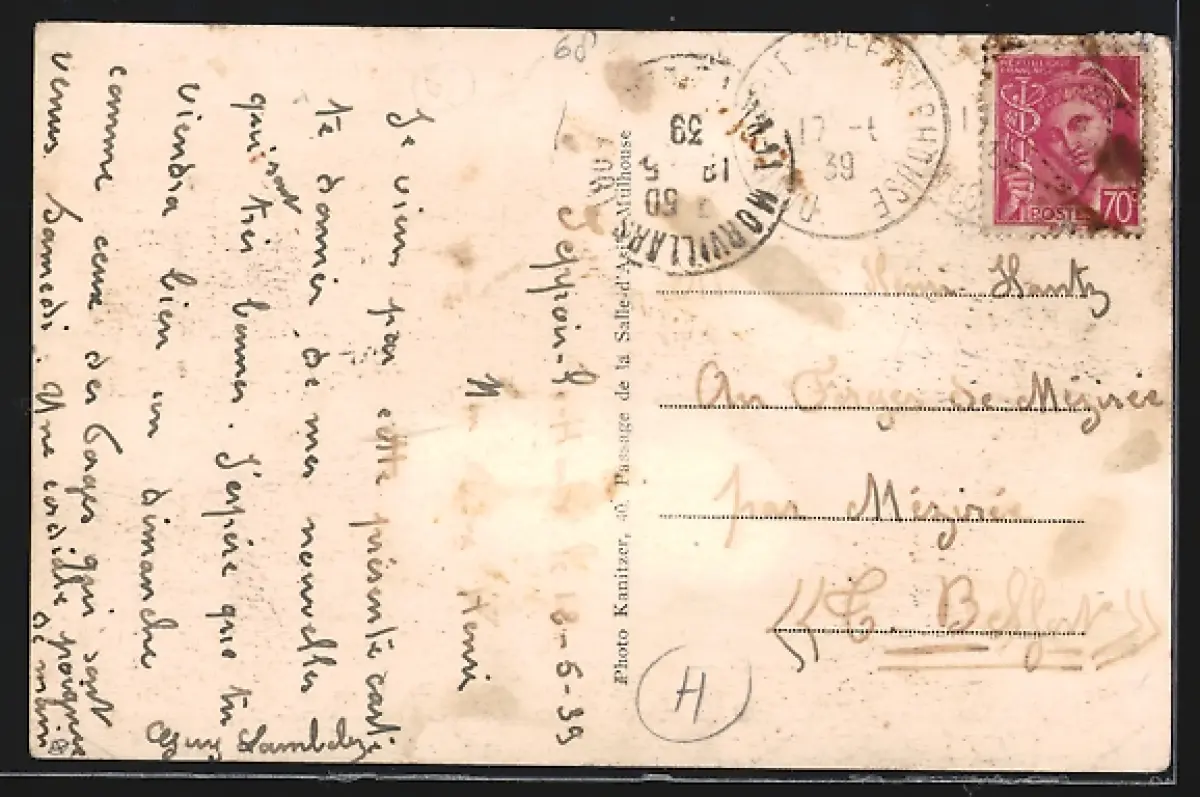 68
Seppois-le- le 18-5-39
Mon cher Henri
Je vien par cette présente carte
te donner de mes nouvelles
qui sont très bonnes. J'espère que tu
viendra bien un dimanche
comme ceux des Forges qui sont
venus Samedi. Une cordiale poignée
de main
RÉPUBLIQUE
FRANÇAISE
POSTES 70c
39
MORVILLARS
18 5
39
Henri Hantz
Au Forges de Méziré
par Méziré
((T. Belfort))
H
Photo Kanitzer, 40, Passage de la Salle-d'As- Mulhouse